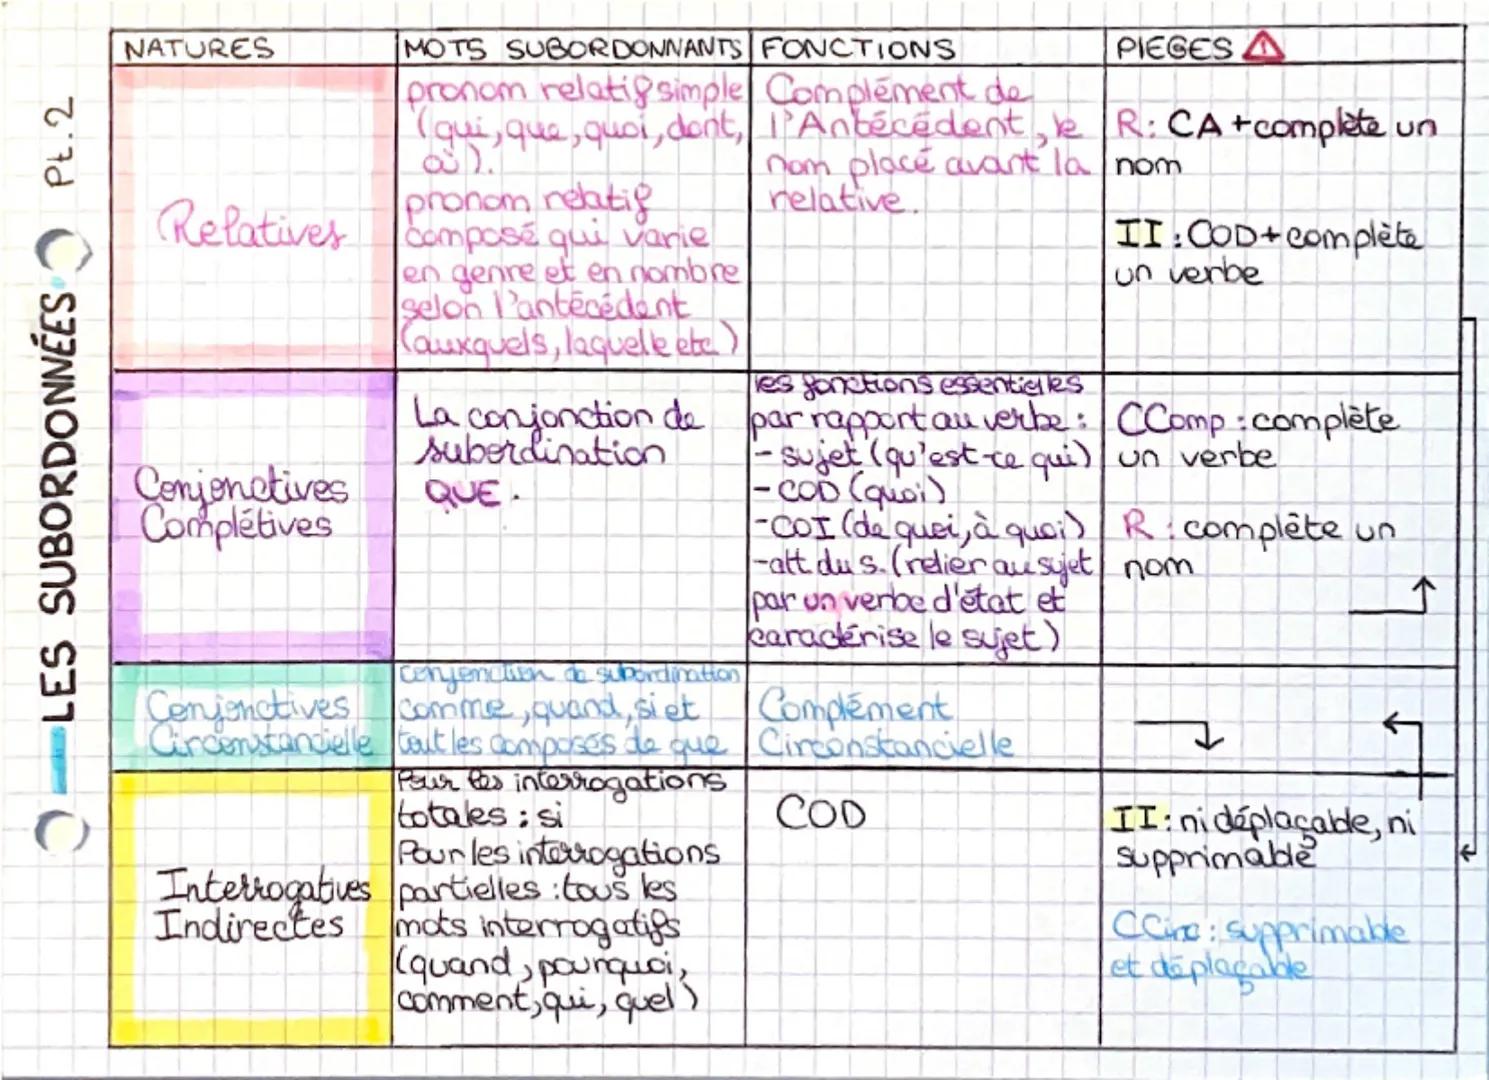 LES SUBORDONNÉES Pt.2
NATURES
MOTS SUBORDONNANTS
FONCTIONS
PIEGES
Relatives
pronom relatif simple
(qui, que, quoi, dont,
où).
pronom relatif
composé qui varie
en genre et en nombre
selon l'antécédent
(auxquels, laquelle etc)
Complément de
l'Antécédent, le
nom placé avant la
relative.
R: CA + complète un
nom
II: COD + complète
un verbe
Conjonctives
Complétives
La conjonction de
subordination
QUE.
les fonctions essentielles
par rapport au verbe :
- sujet (qu'est-ce qui)
- COD (quoi)
- COI (de quoi, à quoi)
- att. du s. (relier au sujet
par un verbe d'état et
caractérise le sujet)
CComp : complète
un verbe
R : complète un
nom
Conjonctives
Circonstancielle
conjonction de subordination
comme, quand, si et
tout les composés de que
Complément
Circonstancielle
Interrogatives
Indirectes
Pour les interrogations
totales : si
Pour les interrogations
partielles : tous les
mots interrogatifs
(quand, pourquoi,
comment, qui, quel)
COD
II: ni déplaçable, ni
supprimable
CCirc : supprimable
et déplaçable